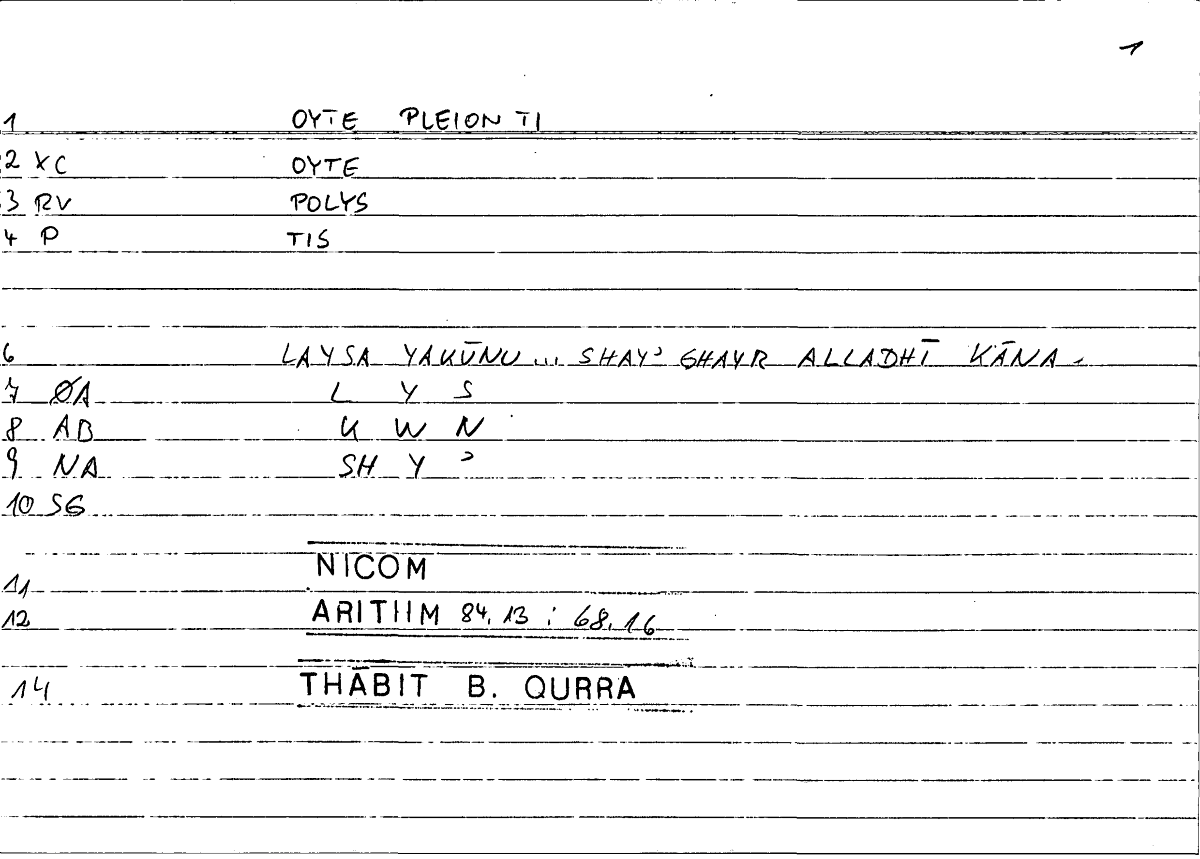 1
1 OYTE PLEION TI
2 XC OYTE
3 RV POLYS
4 P TIS
6 LAYSA YAKŪNU... SHAY' GHAYR ALLADHĪ KĀNA.
7 ØA L Y S
8 AB K W N
9 NA SH Y '
10 SG
NICOM
11
12 ARITIIM 84.13 ; 68.16
14 THĀBIT B. QURRA